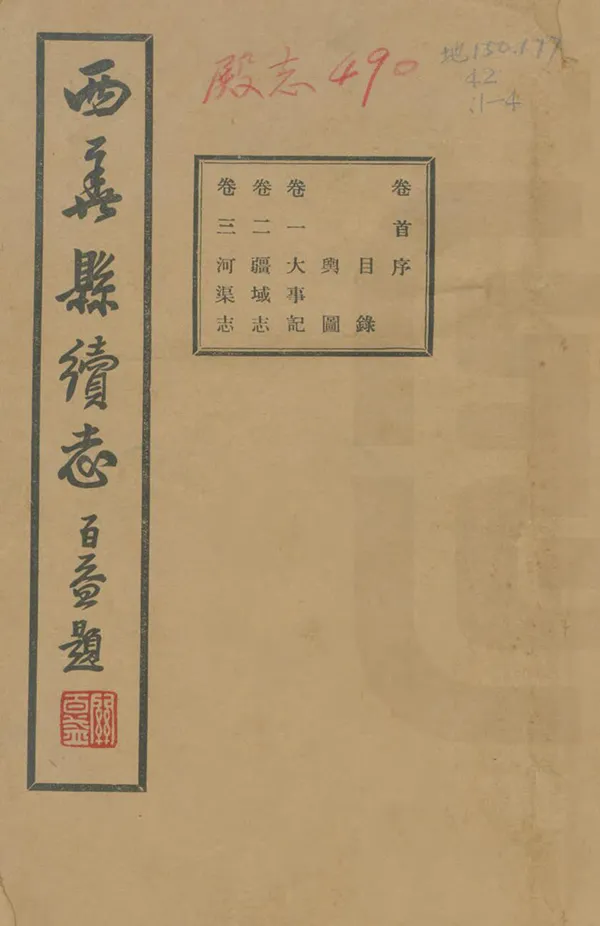 殿志490
42
:1-4
卷首序
目錄
輿圖
卷一大事記
卷二疆域志
卷三河渠志
西華縣續志 百益題
關百益